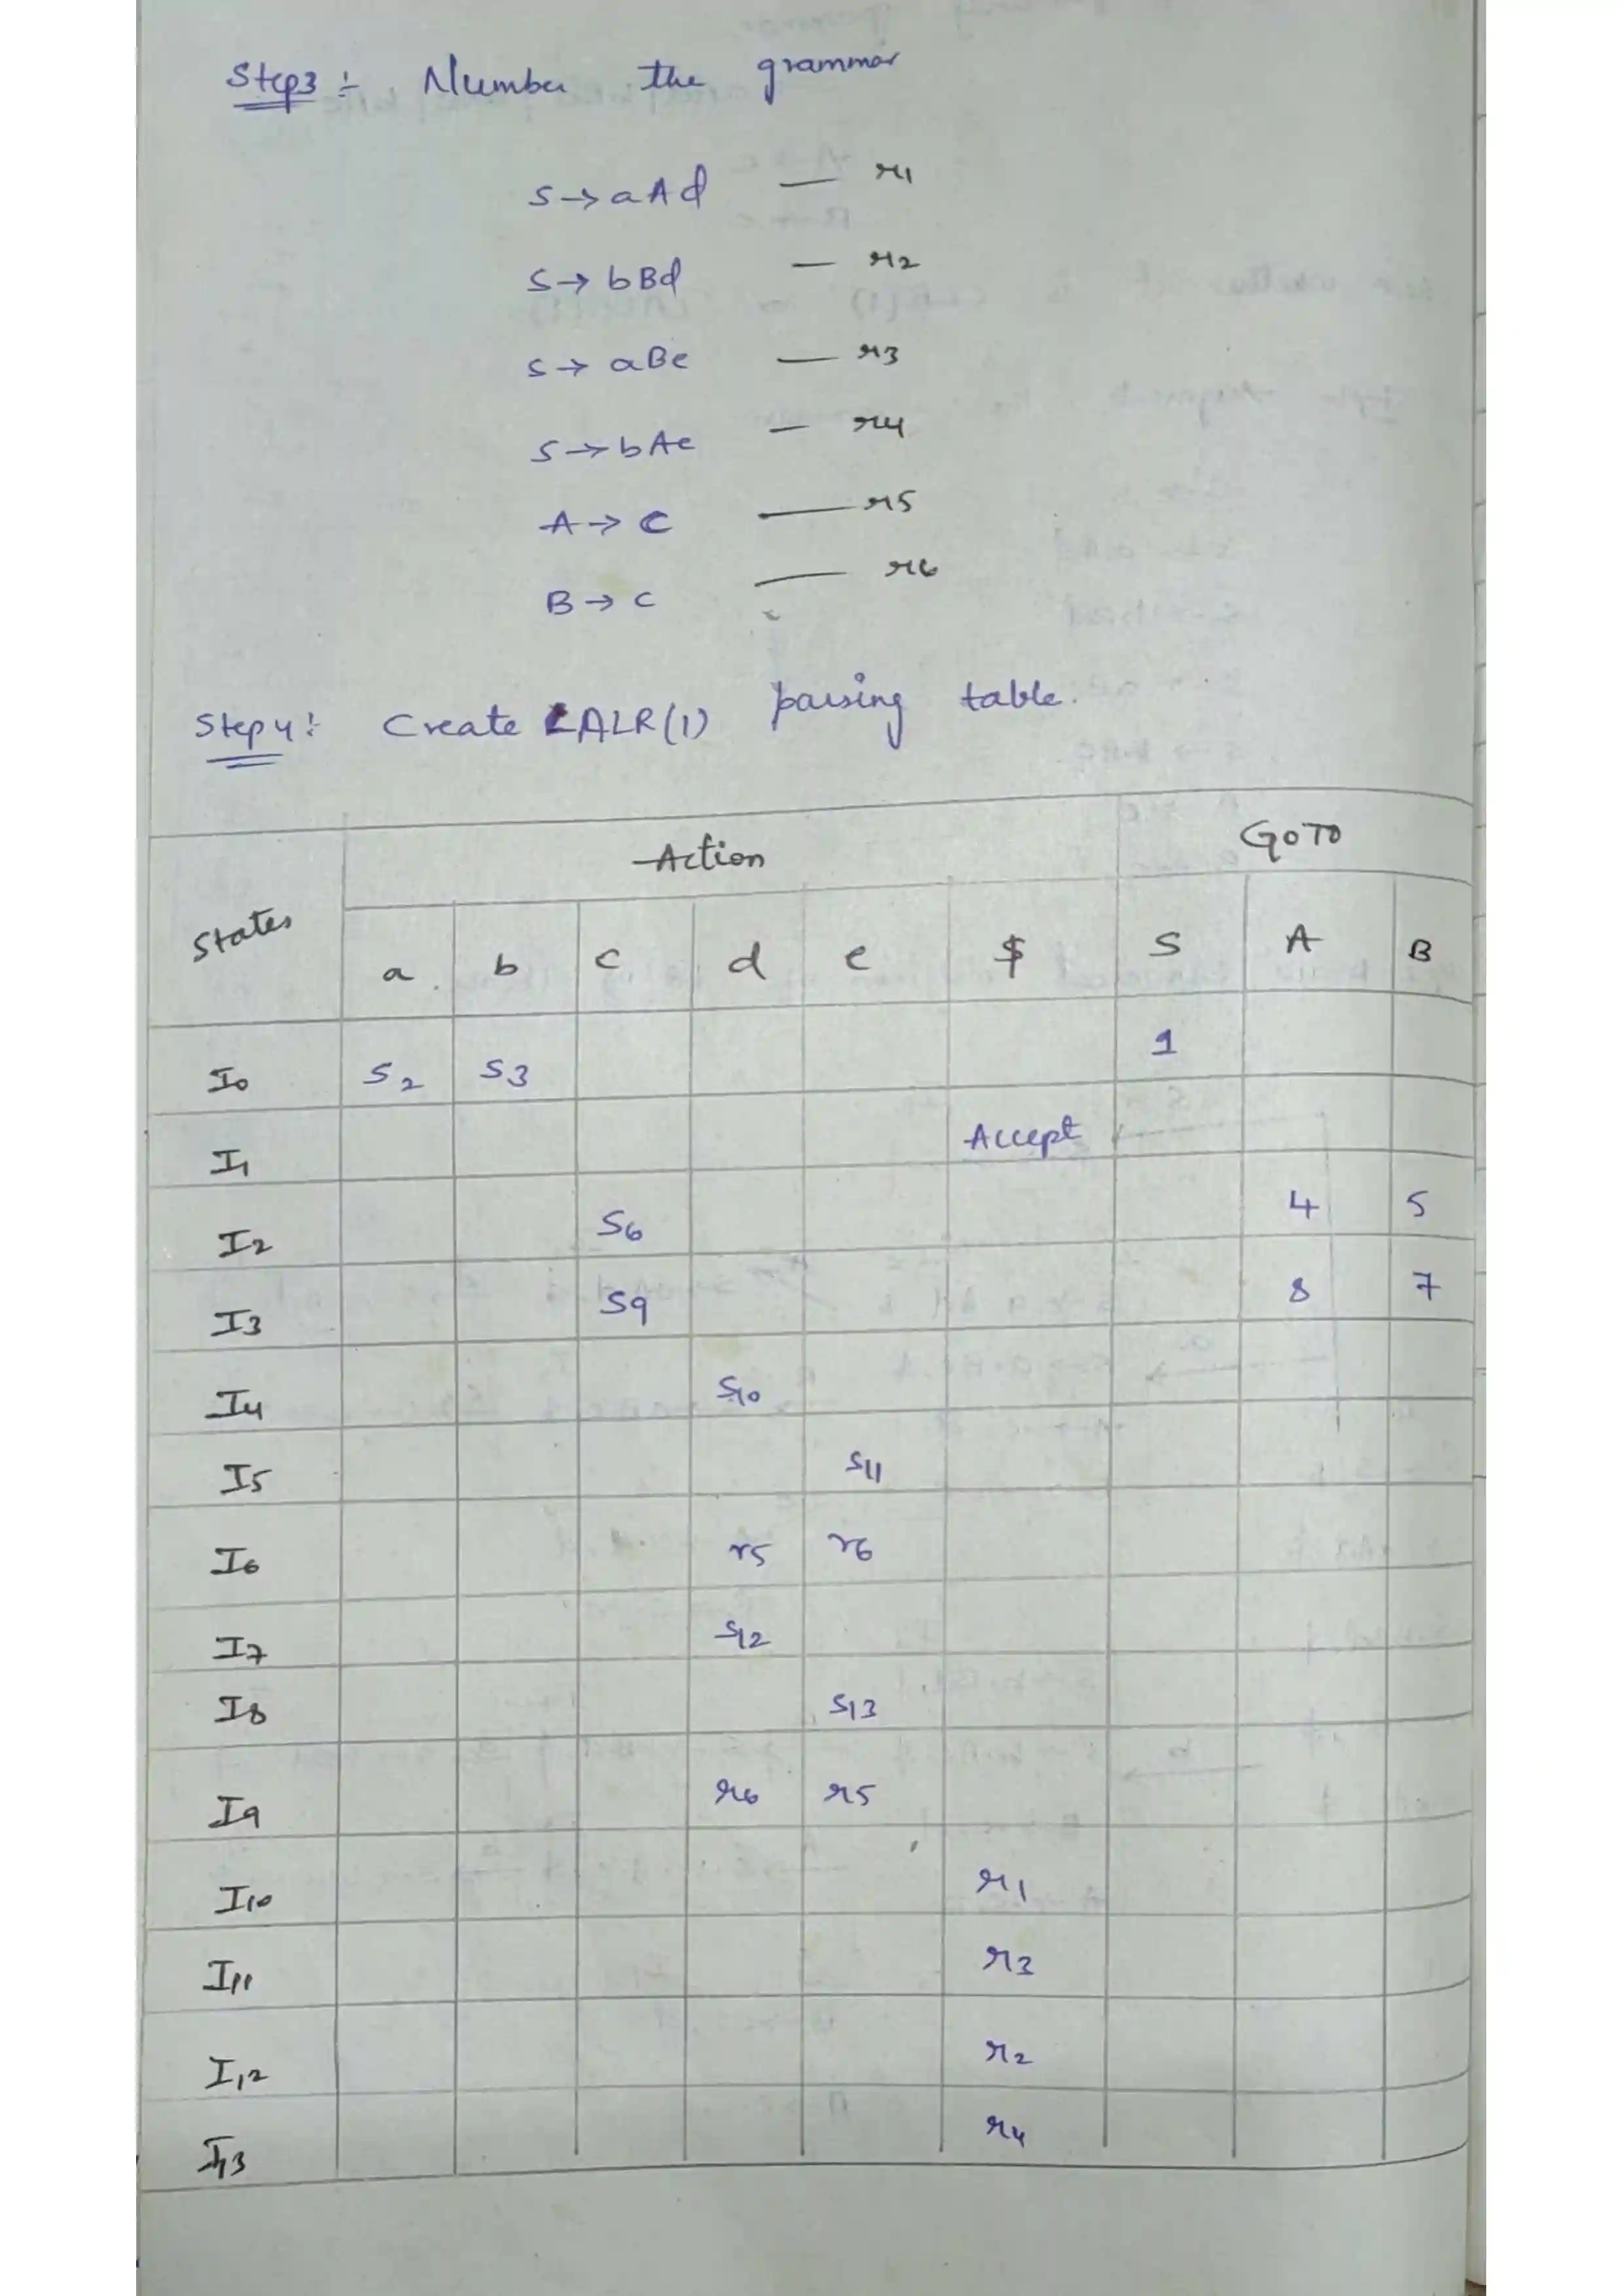 Step3 :- Number the grammar
S → aAd — r1
S → bBd — r2
S → aBe — r3
S → bAe — r4
A → c — r5
B → c — r6
Step 4: Create LALR(1) parsing table.
States Action GOTO
a b c d e $ S A B
I0 S2 S3 1
I1 Accept
I2 S6 4 5
I3 S9 8 7
I4 S10
I5 S11
I6 r5 r6
I7 S12
I8 S13
I9 r6 r5
I10 r1
I11 r3
I12 r2
I13 r4